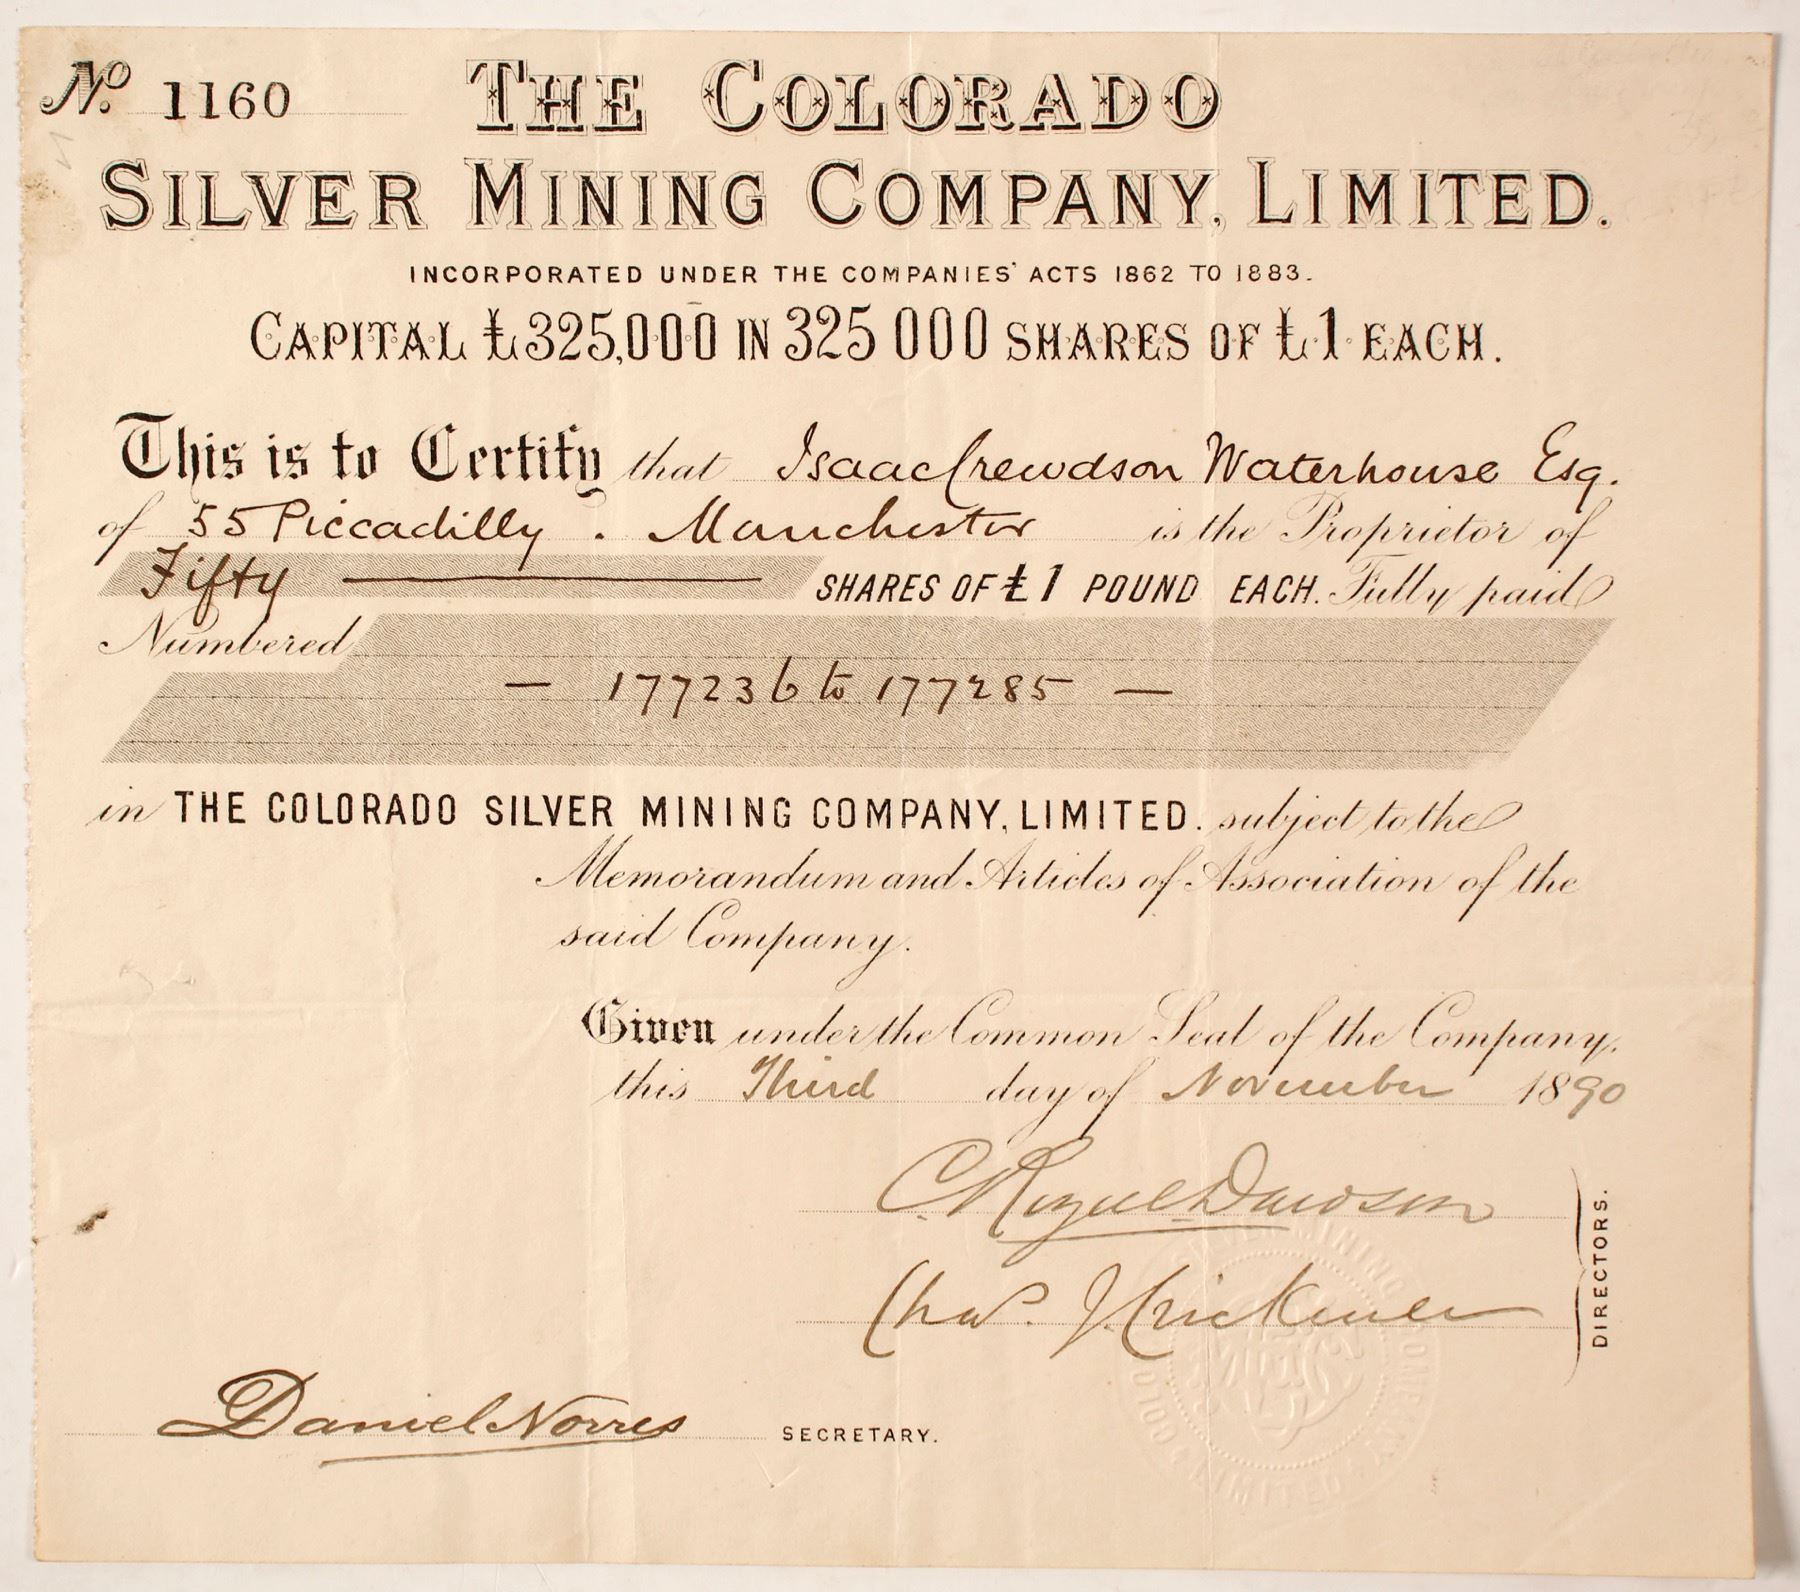 No. 1160
THE COLORADO
SILVER MINING COMPANY, LIMITED.
INCORPORATED UNDER THE COMPANIES' ACTS 1862 TO 1883.
CAPITAL £325,000 IN 325 000 SHARES OF £1 EACH.
This is to Certify that Isaac Crewdson Waterhouse Esq.
of 55 Piccadilly . Manchester is the Proprietor of
Fifty SHARES OF £1 POUND EACH. Fully paid
Numbered
— 177236 to 177285 —
in THE COLORADO SILVER MINING COMPANY, LIMITED. subject to the
Memorandum and Articles of Association of the
said Company.
Given under the Common Seal of the Company,
this Third day of November 1890
C. Dawson
Chas. J.
DIRECTORS.
Daniel Norris SECRETARY.